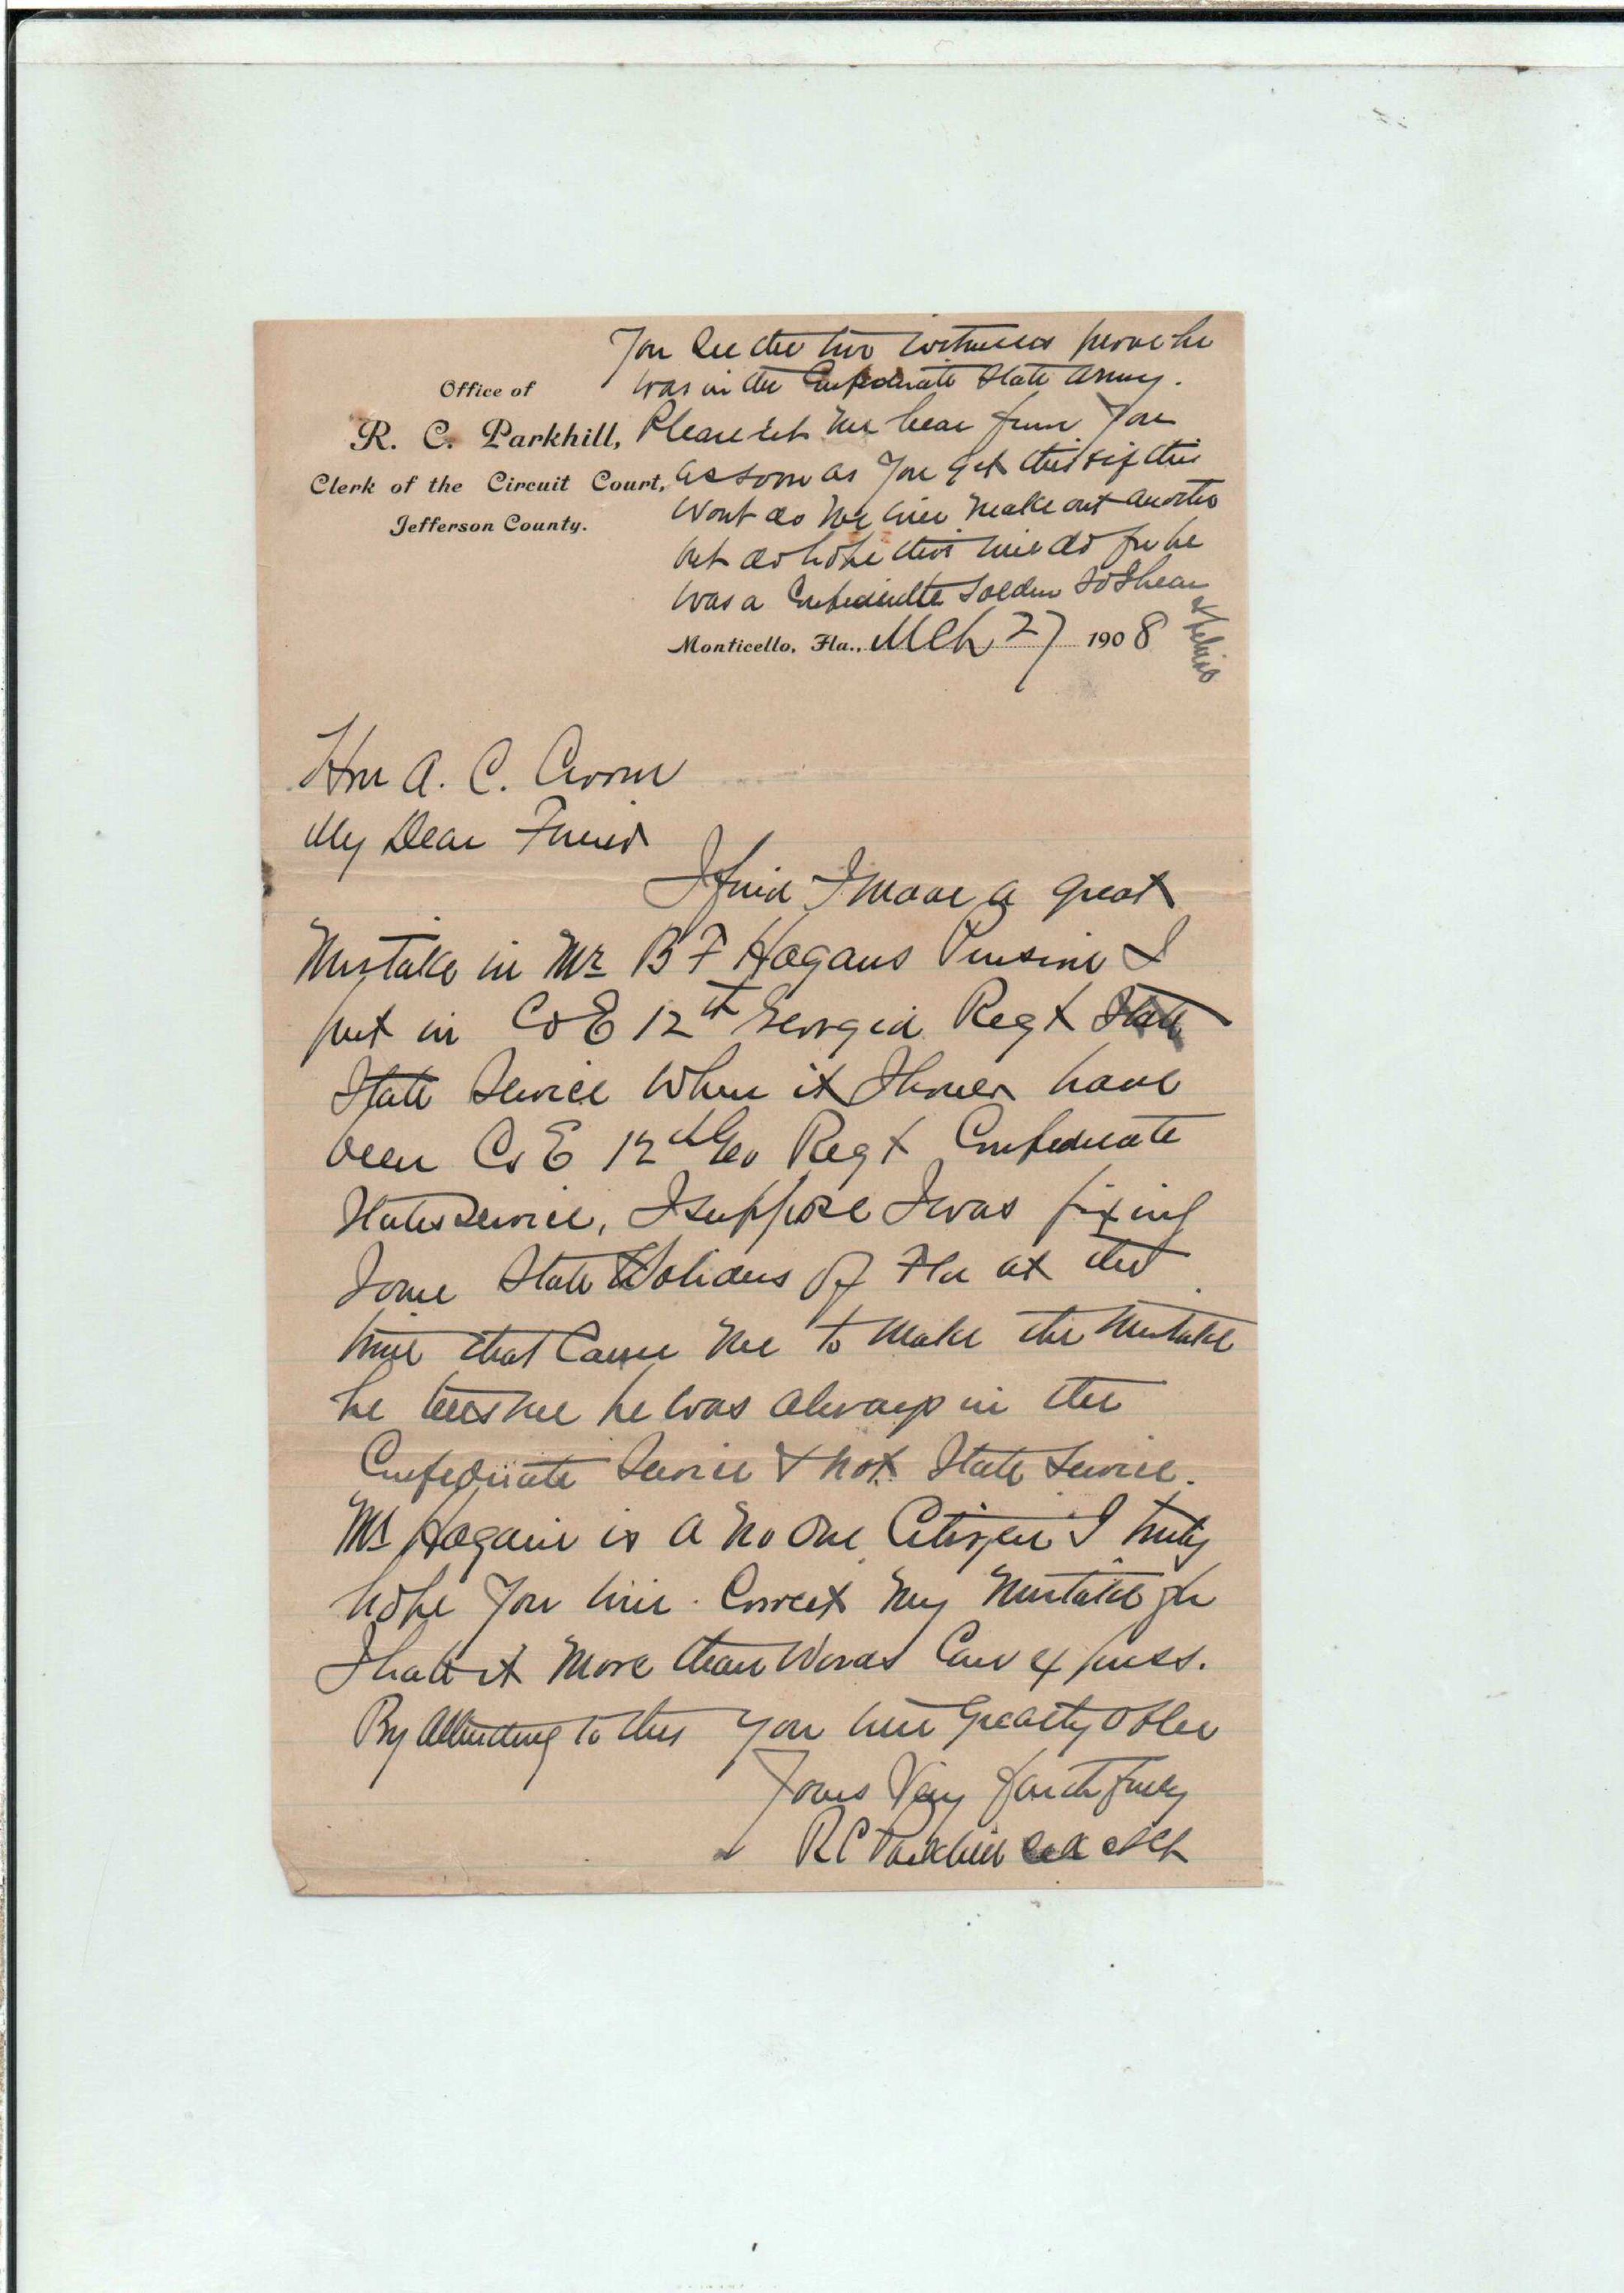 You see the two witnesses prove he
was in the Confederate State Army.
Office of
R. C. Parkhill,
Clerk of the Circuit Court,
Jefferson County.
Please let me hear from you
as soon as you get this & if this
wont do we will make out another
but do hope this will do for he
was a Confederate Soldier so I hear
& believe
Monticello, Fla., Mch 27 1908
Hon A. C. Croom
My Dear Friend
I find I made a great
Mistake in Mr B F Hogans Pension I
put in Co E 12th Georgia Regt State
State Service when it Should have
been Co E 12th Geo Regt Confederate
States service, I suppose I was fixing
Some State Soldiers of Fla at the
time that Cause me to make the mistake
he tells me he was always in the
Confederate Service & not State Service.
Mr Hogans is a No One Citizen I truly
hope you will Correct my mistake for
I hate it more than Words Can express.
By Attending to this you will Greatly oblee
Yours Very faithfully
R C Parkhill